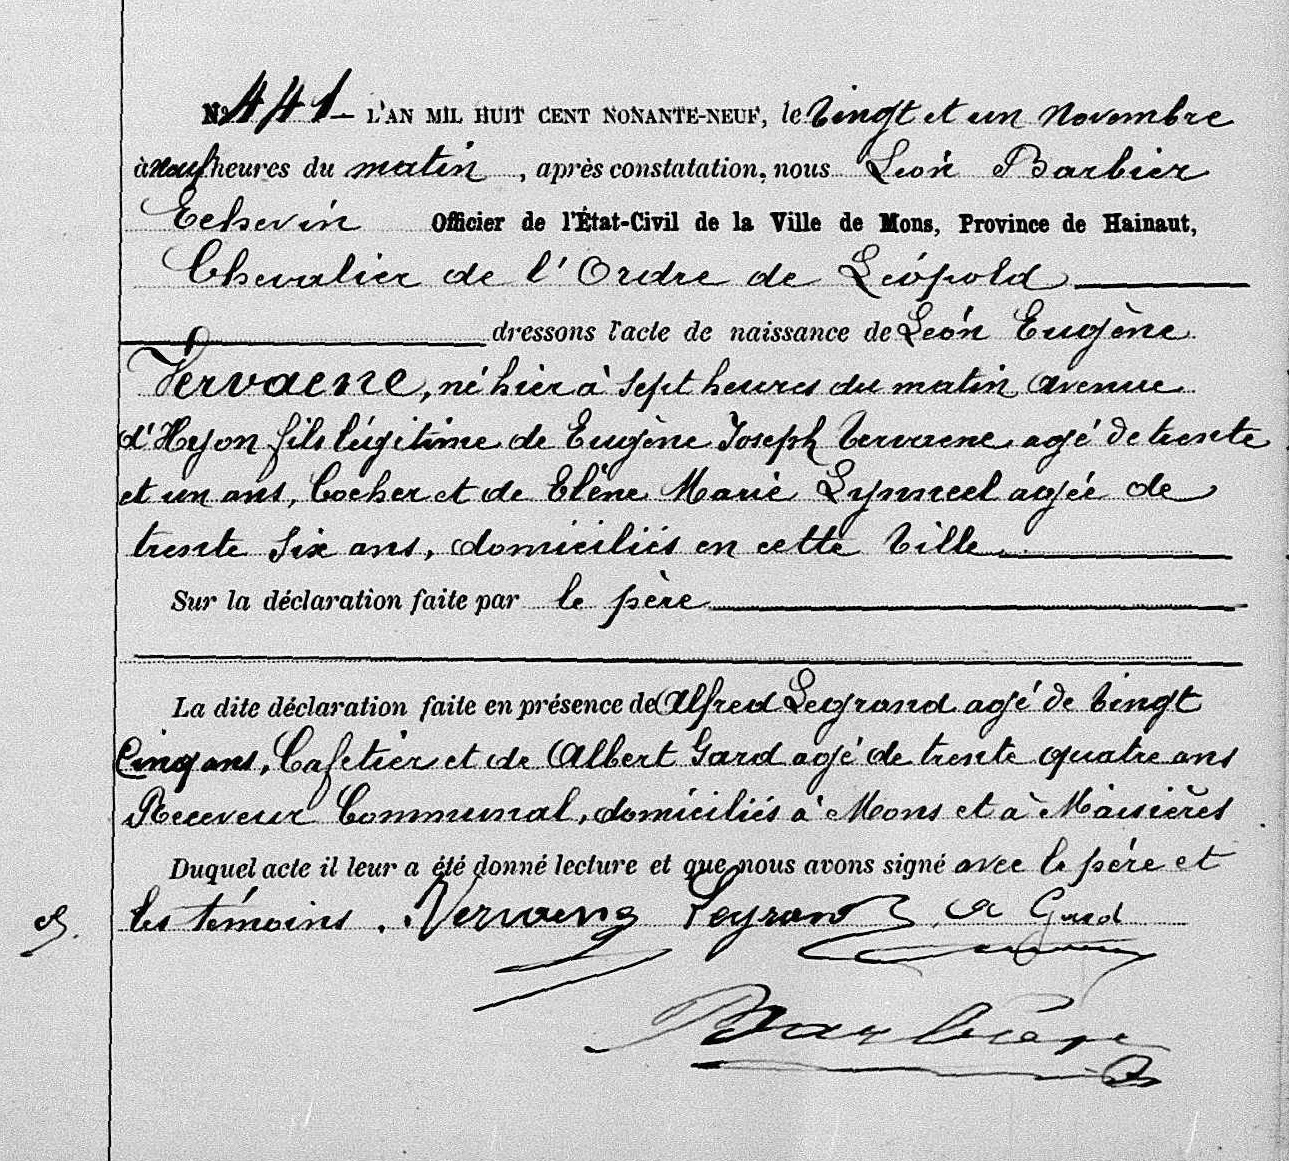 N° 441 - L'AN MIL HUIT CENT NONANTE-NEUF, le vingt et un Novembre
à neuf heures du matin, après constatation, nous Léon Barbier
Echevin Officier de l'État-Civil de la Ville de Mons, Province de Hainaut,
Chevalier de l'Ordre de Léopold
dressons l'acte de naissance de Léon Eugène
Vervaene, né hier à sept heures du matin avenue
d'Hyon fils légitime de Eugène Joseph Vervaene agé de trente
et un ans, Cocher et de Elène Marie Lymneel agée de
trente six ans, domiciliés en cette Ville
Sur la déclaration faite par le père
La dite déclaration faite en présence de Alfred Legrand agé de vingt
Cinq ans, Cafetier et de Albert Gard agé de trente quatre ans
Receveur Communal, domiciliés à Mons et à Maisières
Duquel acte il leur a été donné lecture et que nous avons signé avec le père et
les témoins. Vervaene Legrand A Gard
Barbier